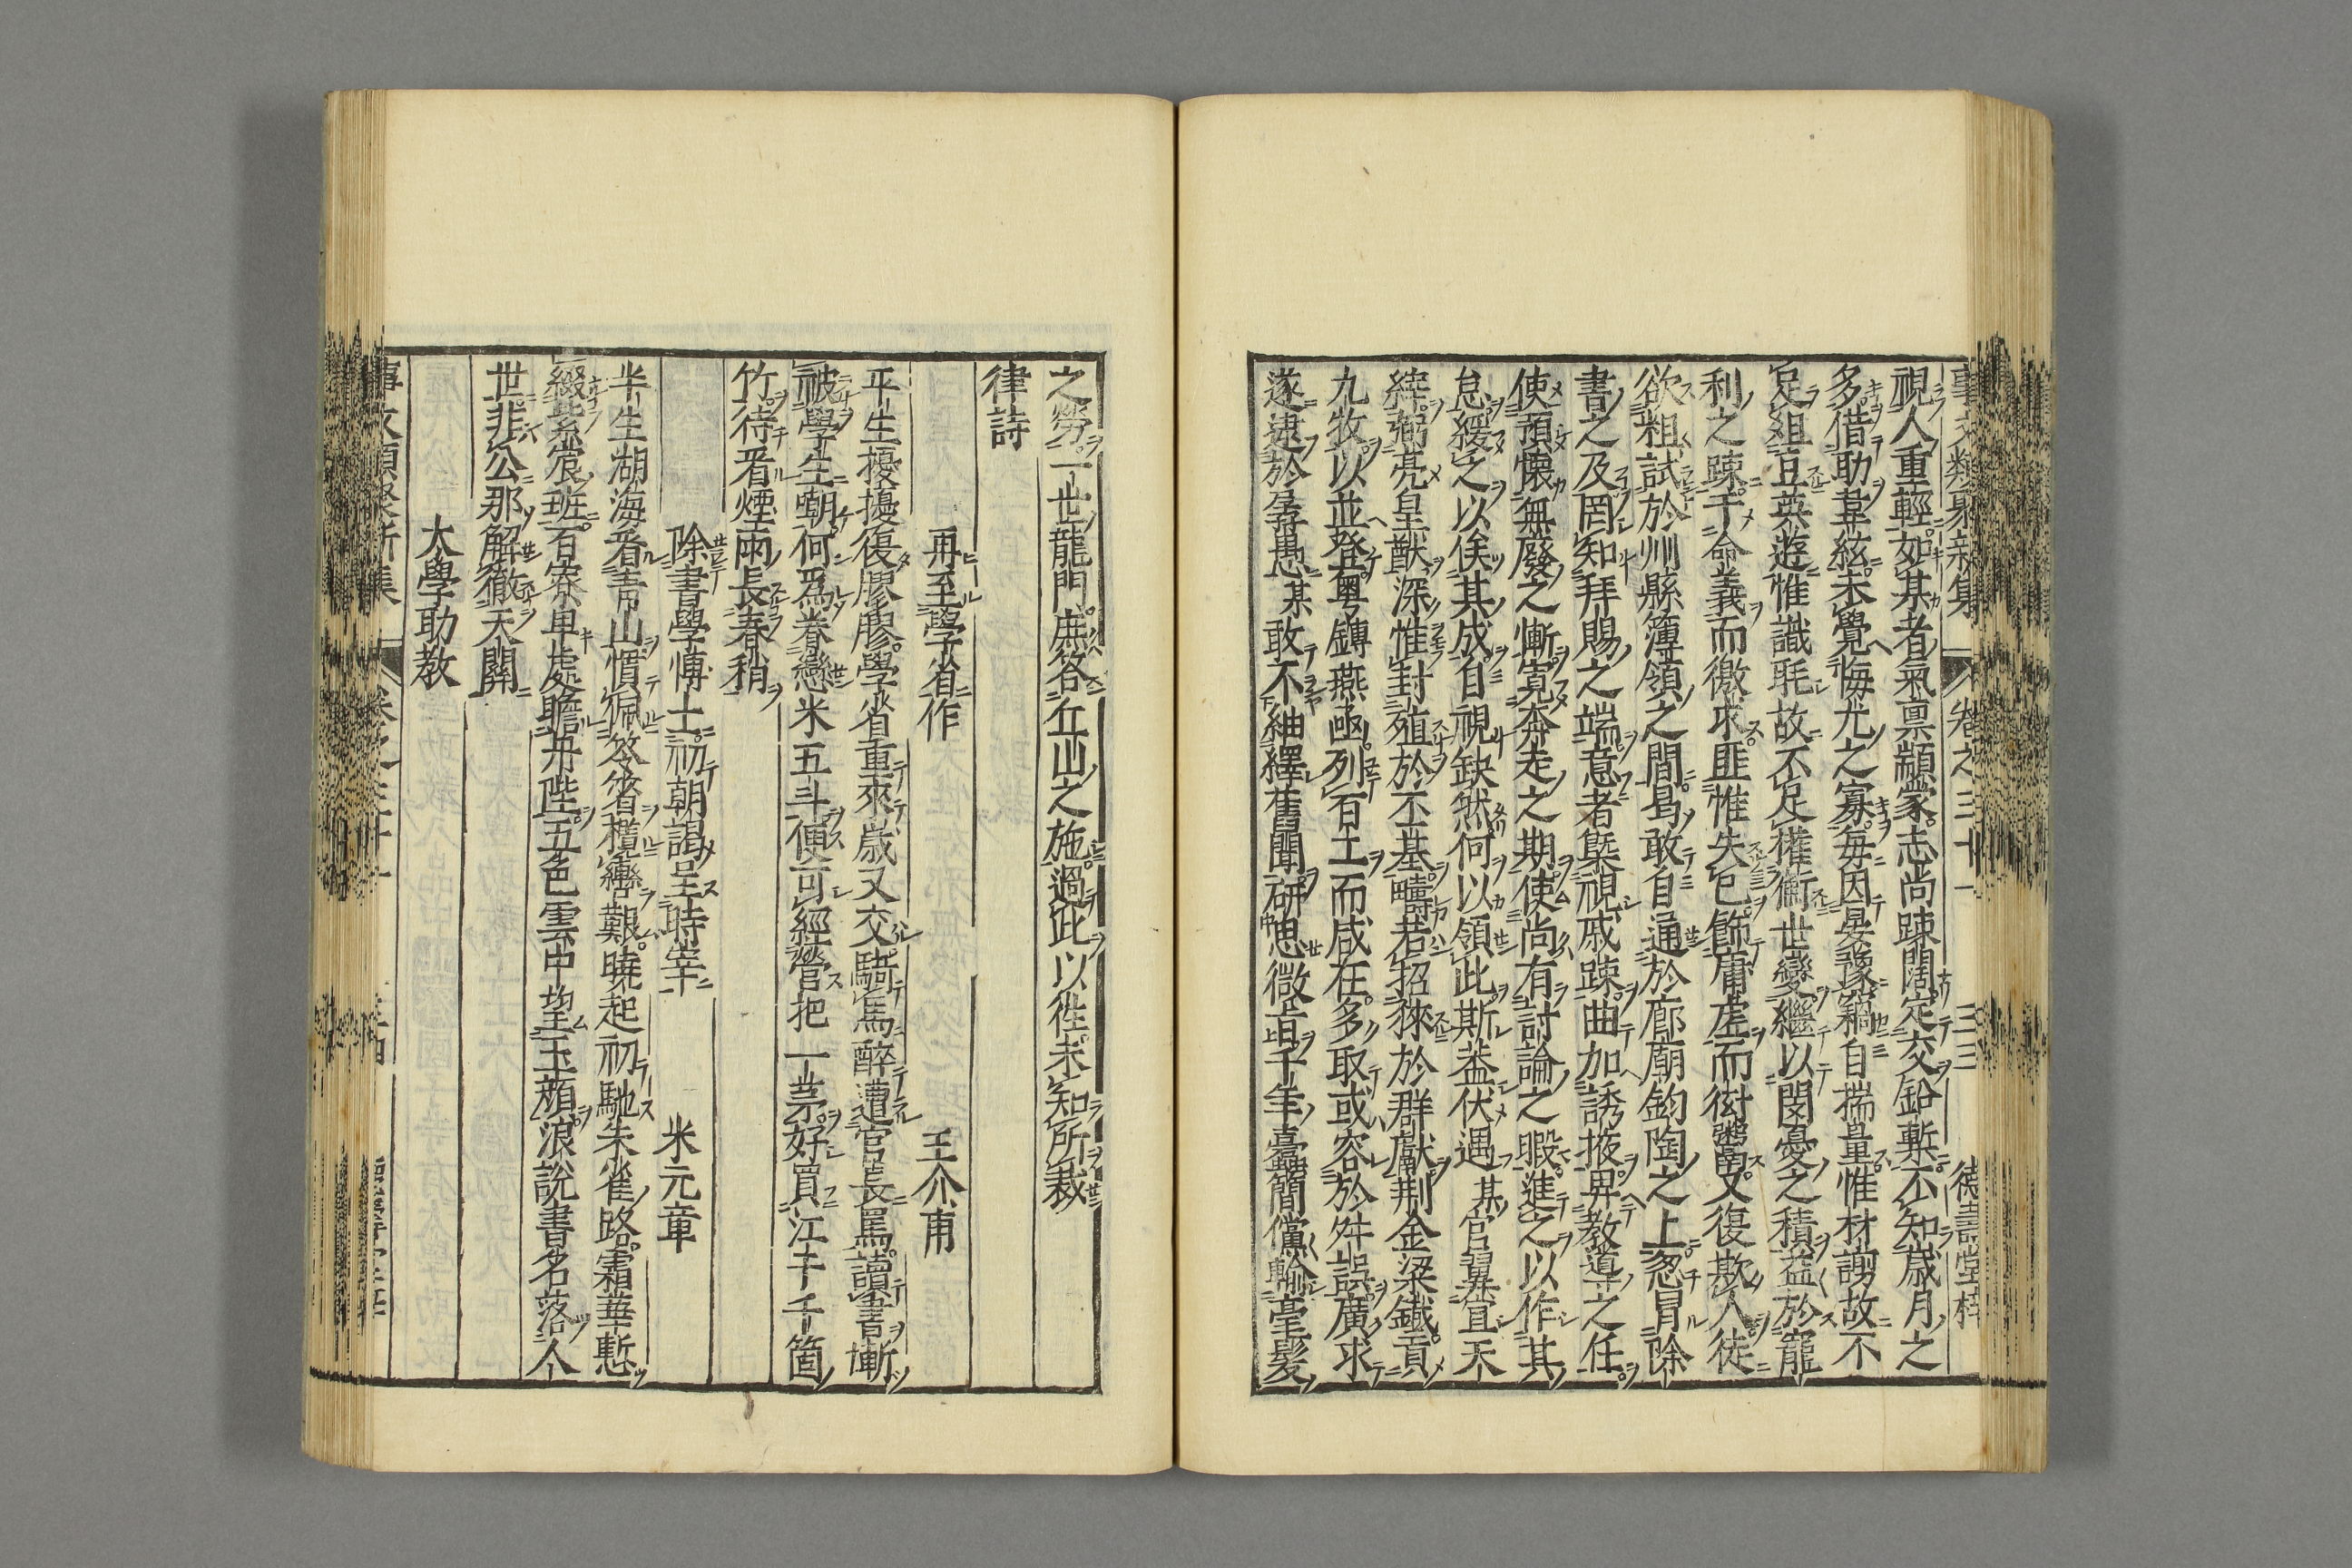 事文類聚新集 卷之三十一 三三 德壽堂梓
視人重輕如某者氣禀顓蒙志尚踈闊定交鉛槧不知歳月之
多借助韋絃未覺悔尤之寡每因晏豫竊自揣量惟材謭故不
足組豆英遊惟識毦故不足權衡世變繼以閔憂之積益於寵
利之踈干命義而徼求匪惟失已飾庸虗而衒鬻又復欺人徒
欲粗試於州縣簿領之間曷敢自通於廊廟鈞陶之上忽冐除
書之及罔知拜賜之端意者槩視戚踈曲加誘掖畀教導之任
使預懷無廢之慚寛奔走之期使尚有討論之暇進之以作其
怠緩之以俟其成自視缺然何以領此斯葢伏遇某官翼宣天
緯弼亮皇猷深惟封殖於丕基疇若招猍於群獻荆金梁鐵貢
九牧以並登粤鏄燕函列百工而咸在多取或容於舛誤廣求
遂逮於孱愚某敢不紬繹舊聞研思微旨千年臺簡儻輸毫髮
之勞一世龍門庶答丘山之施過此以徃未知所裁
律詩
再至學省作 王介甫
平生擾擾復膠膠學省重來歳又交騎馬醉遭官長罵讀書慚
被學生嘲何爲眷戀米五斗便可經營把一茅好買江干千箇
竹待看煙雨長春稍
除書學博士初朝謁呈時宰 米元章
半生湖海看青山慣佩笭箵攬轡艱曉起初馳朱雀路霜華慙
綴紫宸班百寮卑處瞻丹陛五色雲中望玉顔浪說書名落人
世非公那解徹天關
大學助教
事文類聚新集